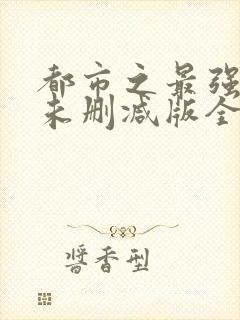 都市之最强
未删减版全
酱香型